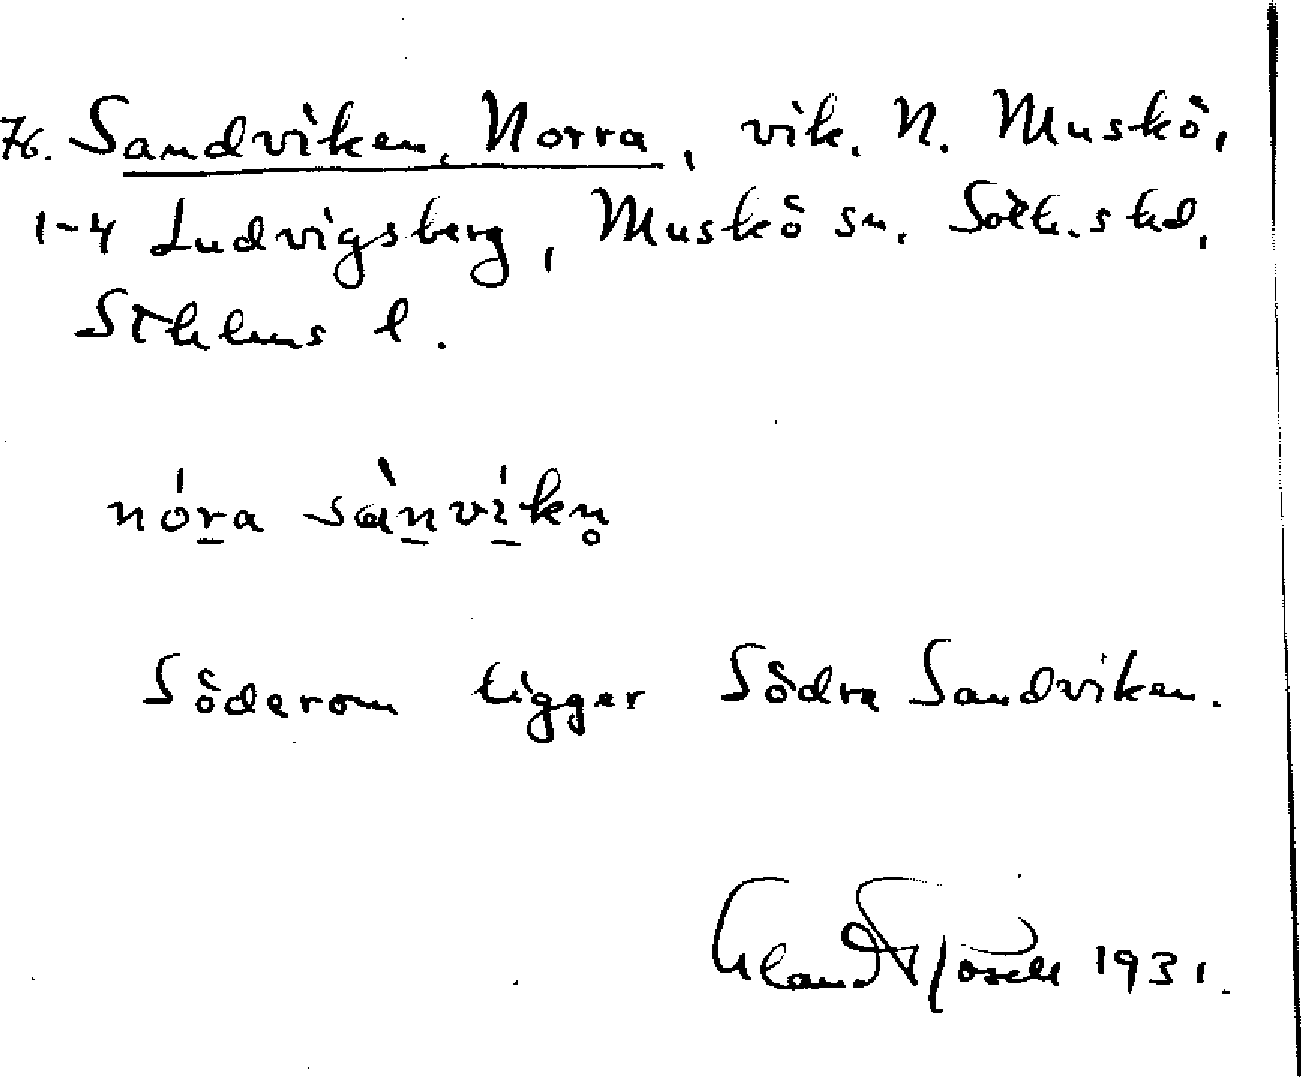 76. Sandviken, Norra, vik. N. Muskö,
1-4 Ludvigsberg, Muskö sn. Sotk.s hd,
Sthlms l.
nóra sànvíkn̥
Söderom ligger Södra Sandviken.
1931.